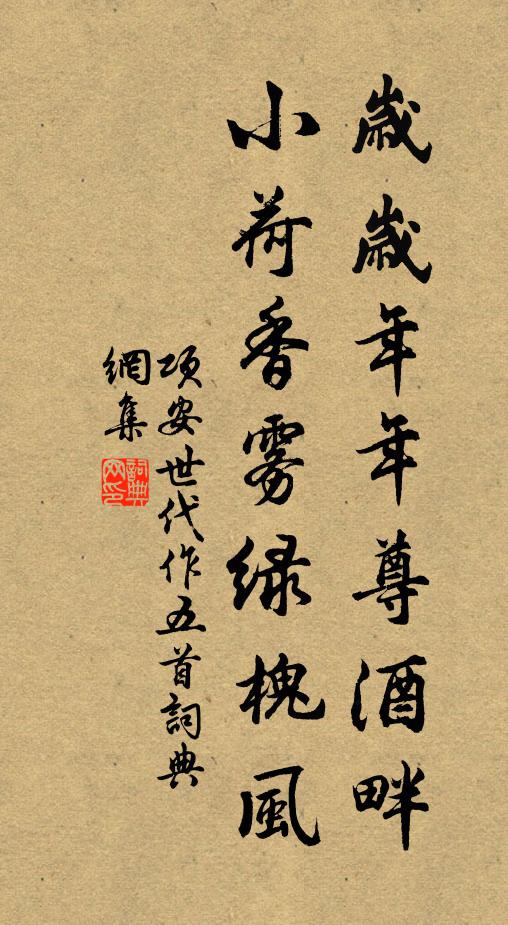 歲歲年年尊酒畔
小荷香霧緑槐風
項安世代作五首詞典
網集
詞典
网印